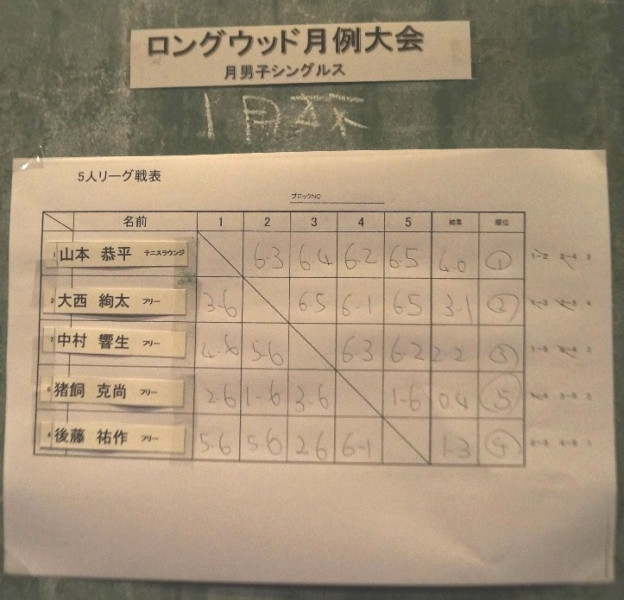 ロングウッド月例大会
月男子シングルス
1月
5人リーグ戦表
ブロックNO
名前 1 2 3 4 5 結果 順位
1 山本 恭平 テニスラウンジ 6-3 6-4 6-2 6-5 4-0 ①
2 大西 絢太 フリー 3-6 6-5 6-1 6-5 3-1 ②
3 中村 響生 フリー 4-6 5-6 6-3 6-2 2-2 ③
猪飼 克尚 フリー 2-6 1-6 3-6 1-6 0-4 ⑤
後藤 祐作 フリー 5-6 5-6 2-6 6-1 1-3 ④